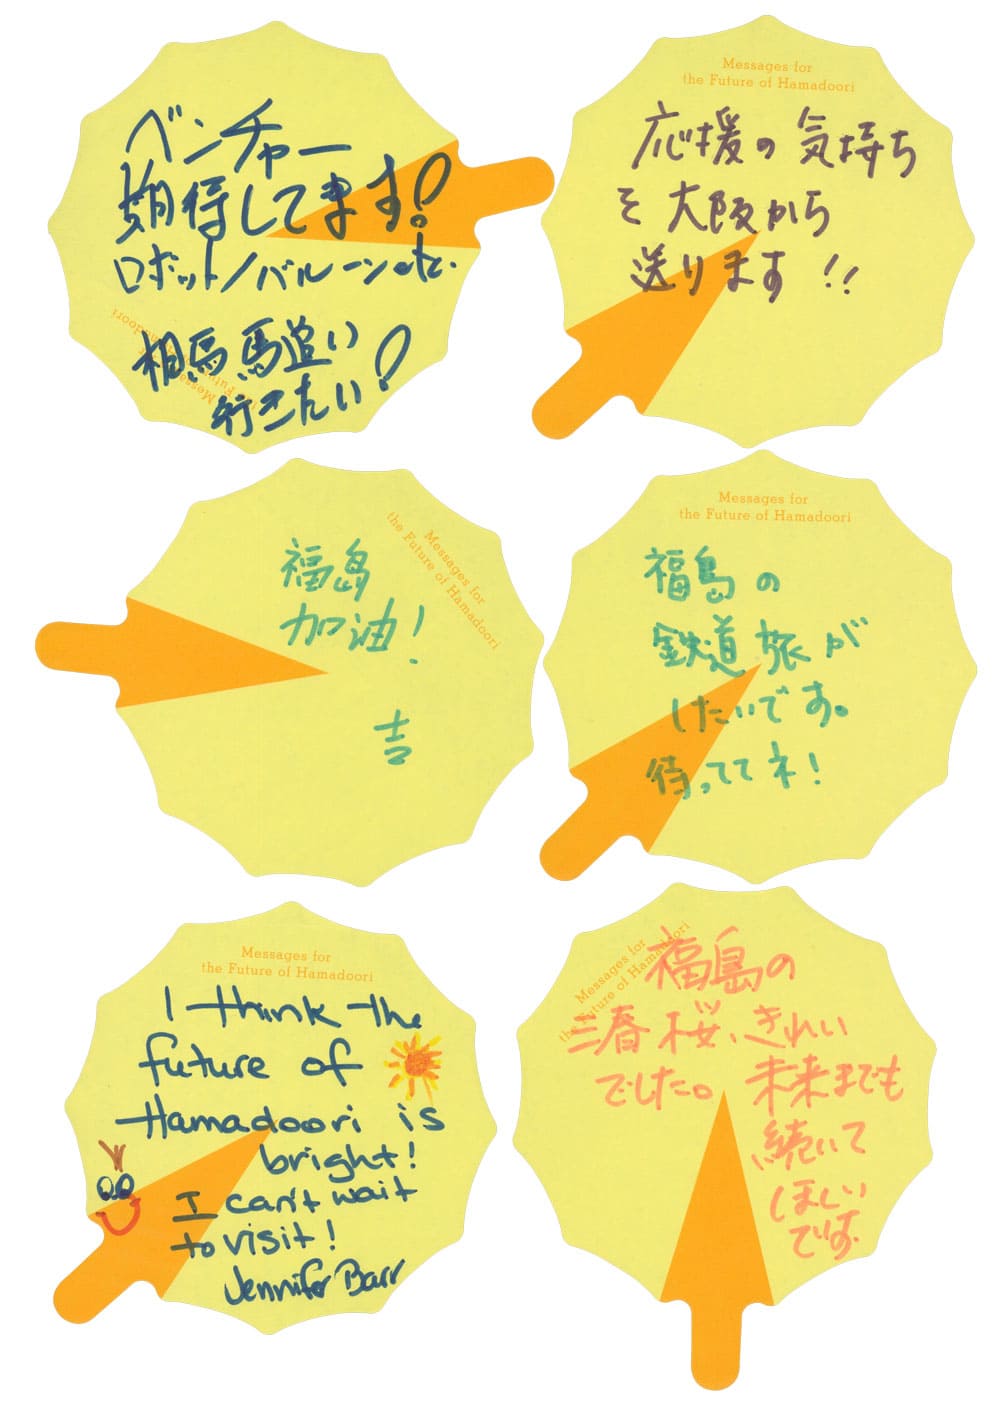 ベンチャー
期待してます!
ロボット/バルーン etc.
相馬 馬追い
行きたい!
Messages for
the Future of Hamadoori
応援の気持ち
を大阪から
送ります!!
Messages for
the Future of Hamadoori
福島
加油!
吉
Messages for
the Future of Hamadoori
福島の
鉄道旅が
したいです。
待っててネ!
Messages for
the Future of Hamadoori
I think the
future of
Hamadoori is
bright!
I can't wait
to visit!
Jennifer Barr
Messages for
the Future of Hamadoori
福島の
三春桜、きれい
でした。未来までも
続いて
ほしい
です